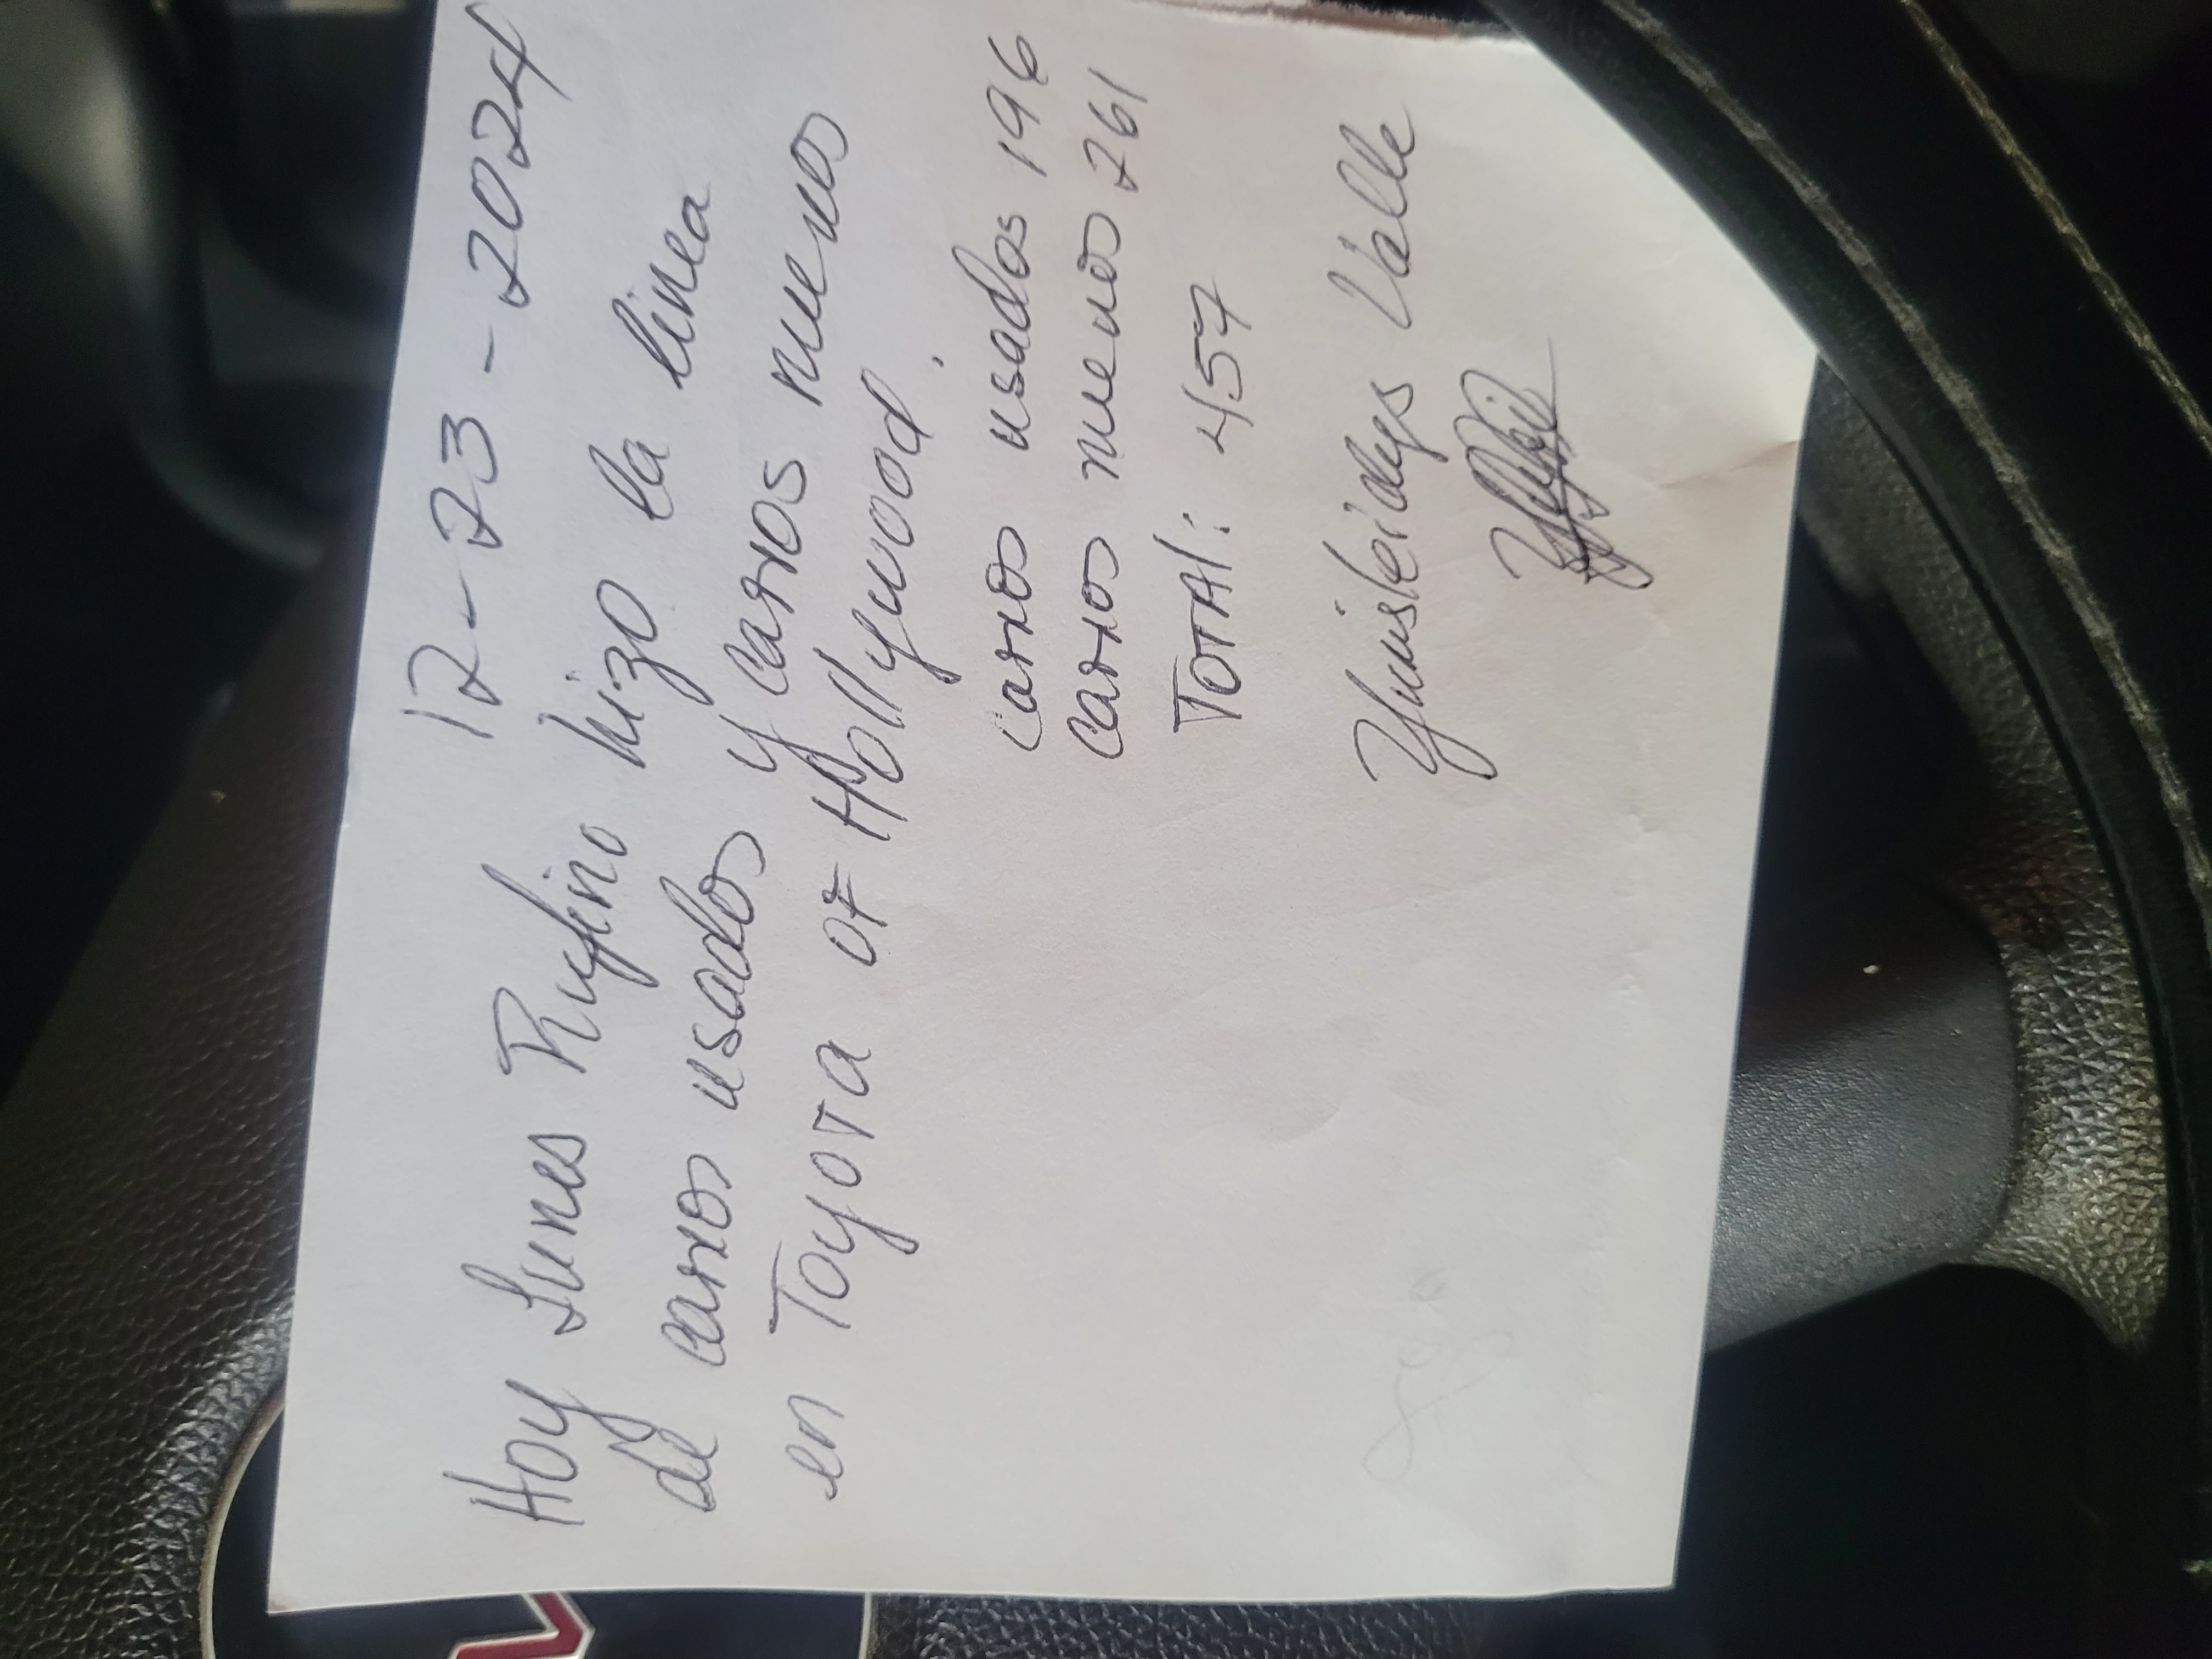 12-23-2024
Hoy Lunes Rufino hizo la linea
de carros usados y carros nuevos
en Toyota of Hollywood.
carros usados 196
carros nuevos 261
Total: 457
Yunisleidys Valle